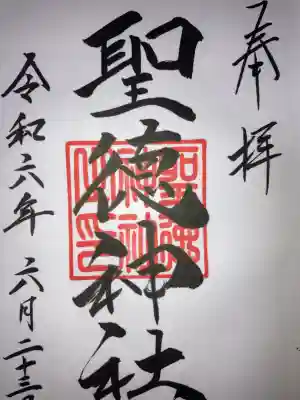 奉拝
聖徳神社
令和六年 六月二十三日